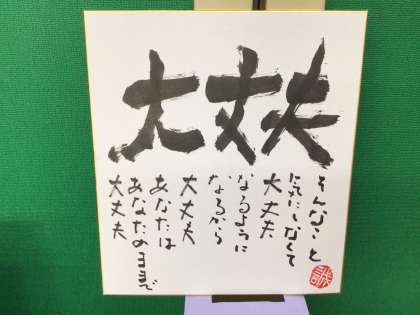 大丈夫
そんなこと
にしなくて
大丈夫
なるように
なるから
大丈夫
あなたは
あなたのままで
大丈夫
誠